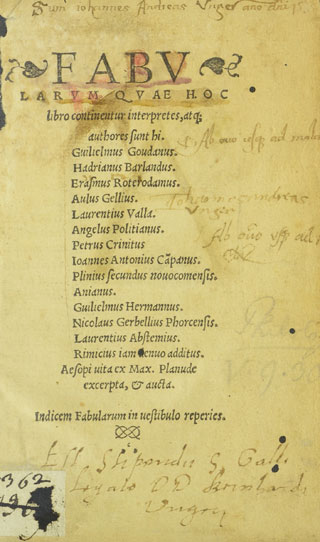 Sum iohannes Andreas Unger
FABV
LARVM QVAE HOC
libro continentur interpretes, atq;
authores sunt hi.
Guilielmus Goudanus.
Hadrianus Barlandus.
Erasmus Roterodamus.
Aulus Gellius.
Laurentius Valla.
Angelus Politianus.
Petrus Crinitus
Ioannes Antonius Cãpanus.
Plinius secundus nouocomensis.
Anianus.
Guilielmus Hermannus.
Nicolaus Gerbellius Phorcensis.
Laurentius Abstemius.
Rimicius iam denuo additus.
Aesopi uita ex Max. Planude
excerpta, & aucta.
Indicem Fabularum in uestibulo reperies.
Ab ovo usq ad mala
Unger
Ab ovo usq ad
Est Stipendii S. Galli
Legato
Ungeri
362